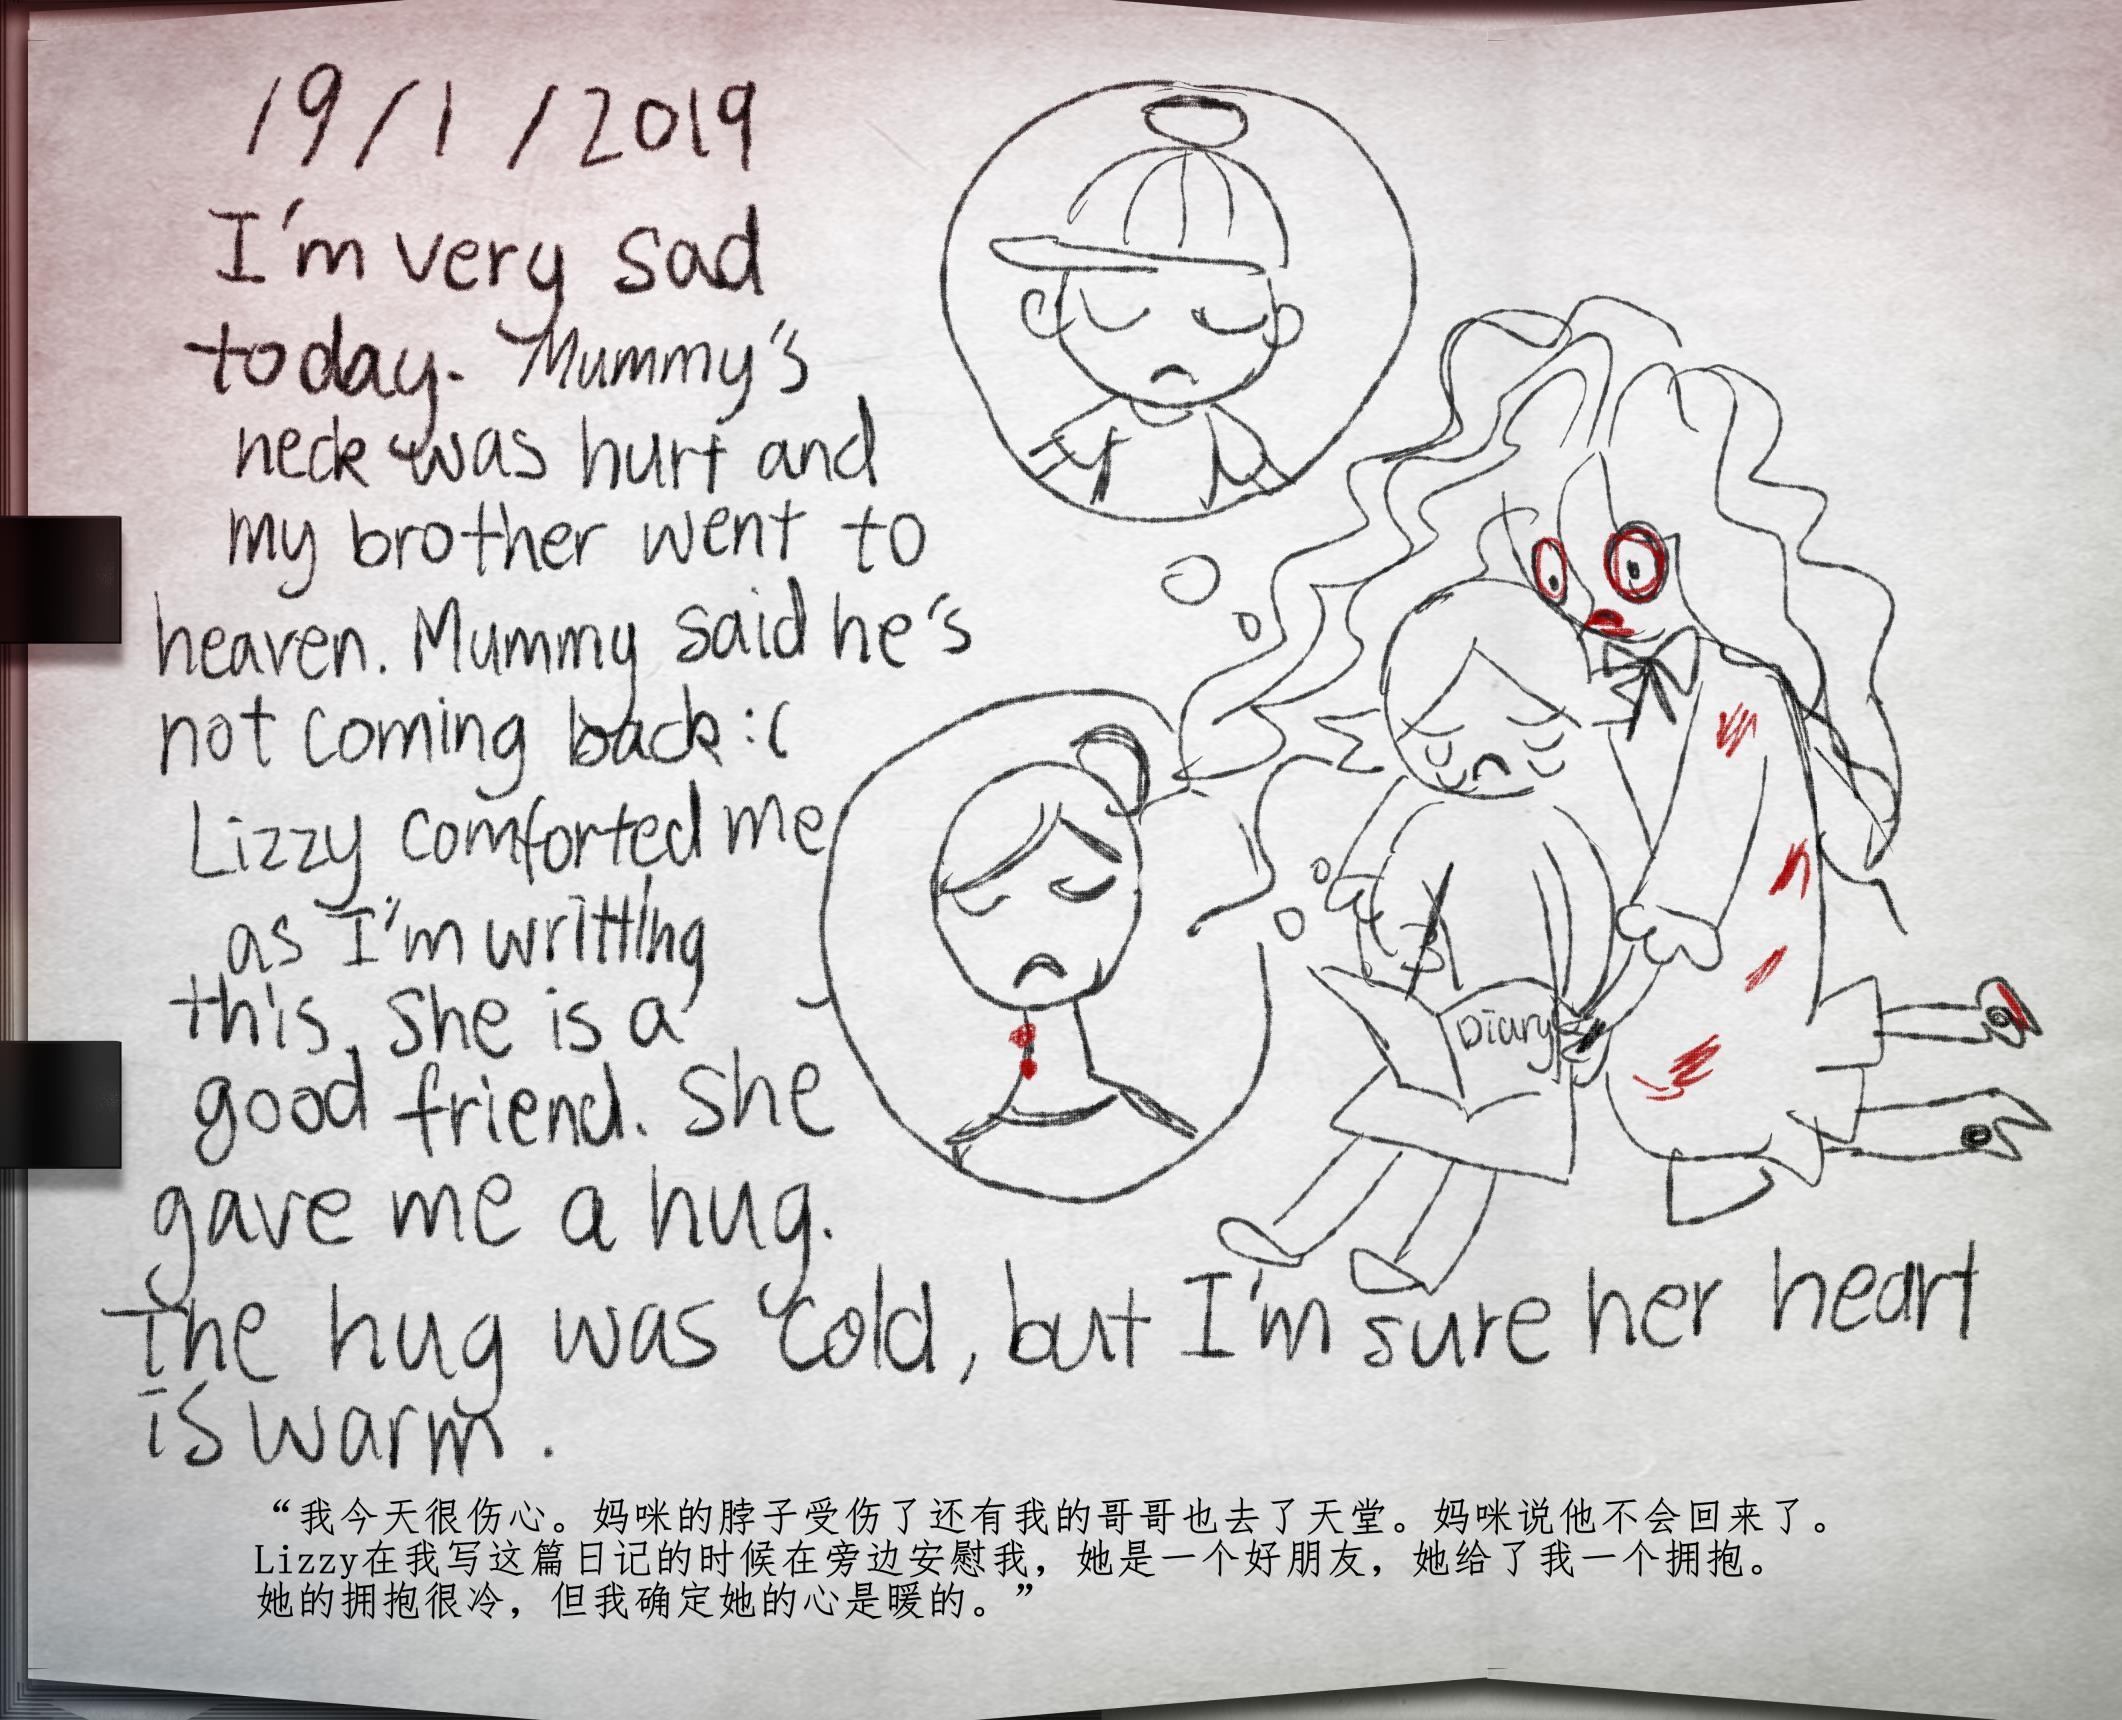 19/1/2019
I'm very sad
today. Mummy's
neck was hurt and
my brother went to
heaven. Mummy said he's
not coming back :(
Lizzy comforted me
as I'm writting
this. She is a
good friend. She
gave me a hug.
The hug was cold, but I'm sure her heart
is warm.
Diary
“我今天很伤心。妈咪的脖子受伤了还有我的哥哥也去了天堂。妈咪说他不会回来了。
Lizzy在我写这篇日记的时候在旁边安慰我，她是一个好朋友，她给了我一个拥抱。
她的拥抱很冷，但我确定她的心是暖的。”